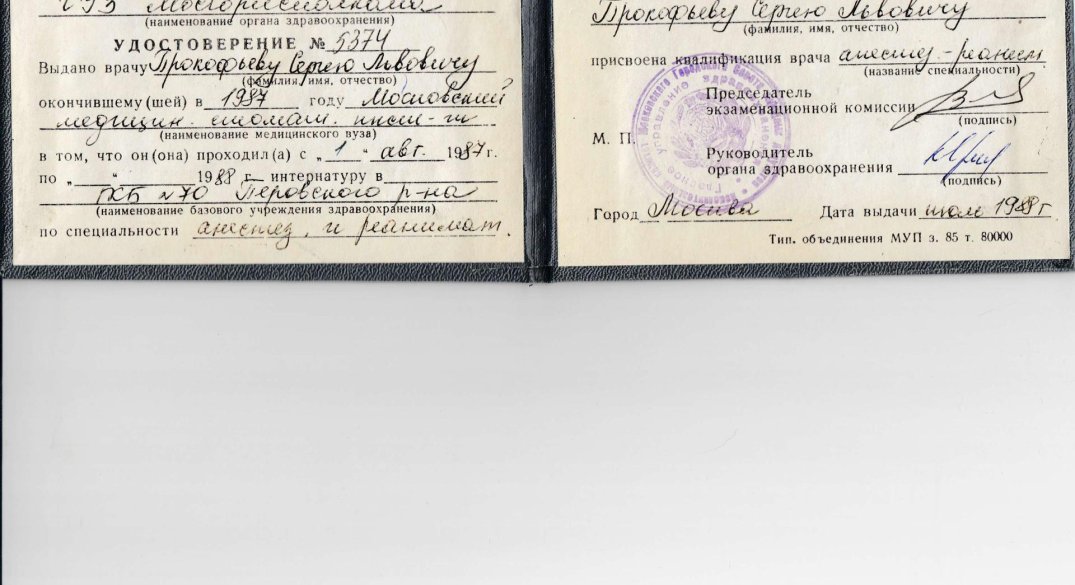 ГУЗ Мосгорисполкома
(наименование органа здравоохранения)
УДОСТОВЕРЕНИЕ № 5374
Выдано врачу Прокофьеву Сергею Львовичу
(фамилия, имя, отчество)
окончившему (шей) в 1987 году Московский
медицин. стомат. инст-т
(наименование медицинского вуза)
в том, что он (она) проходил (а) с „ 1 “ авг. 1987 г.
по „ “ 1988 г. интернатуру в
ГКБ №70 Перовского р-на
(наименование базового учреждения здравоохранения)
по специальности анестез. и реанимат.
Прокофьеву Сергею Львовичу
(фамилия, имя, отчество)
присвоена квалификация врача анестез.-реаним
(название специальности)
Председатель
экзаменационной комиссии
(подпись)
М. П.
Руководитель
органа здравоохранения
(подпись)
Город Москва Дата выдачи июль 1988 г.
Тип. объединения МУП з. 85 т. 80000